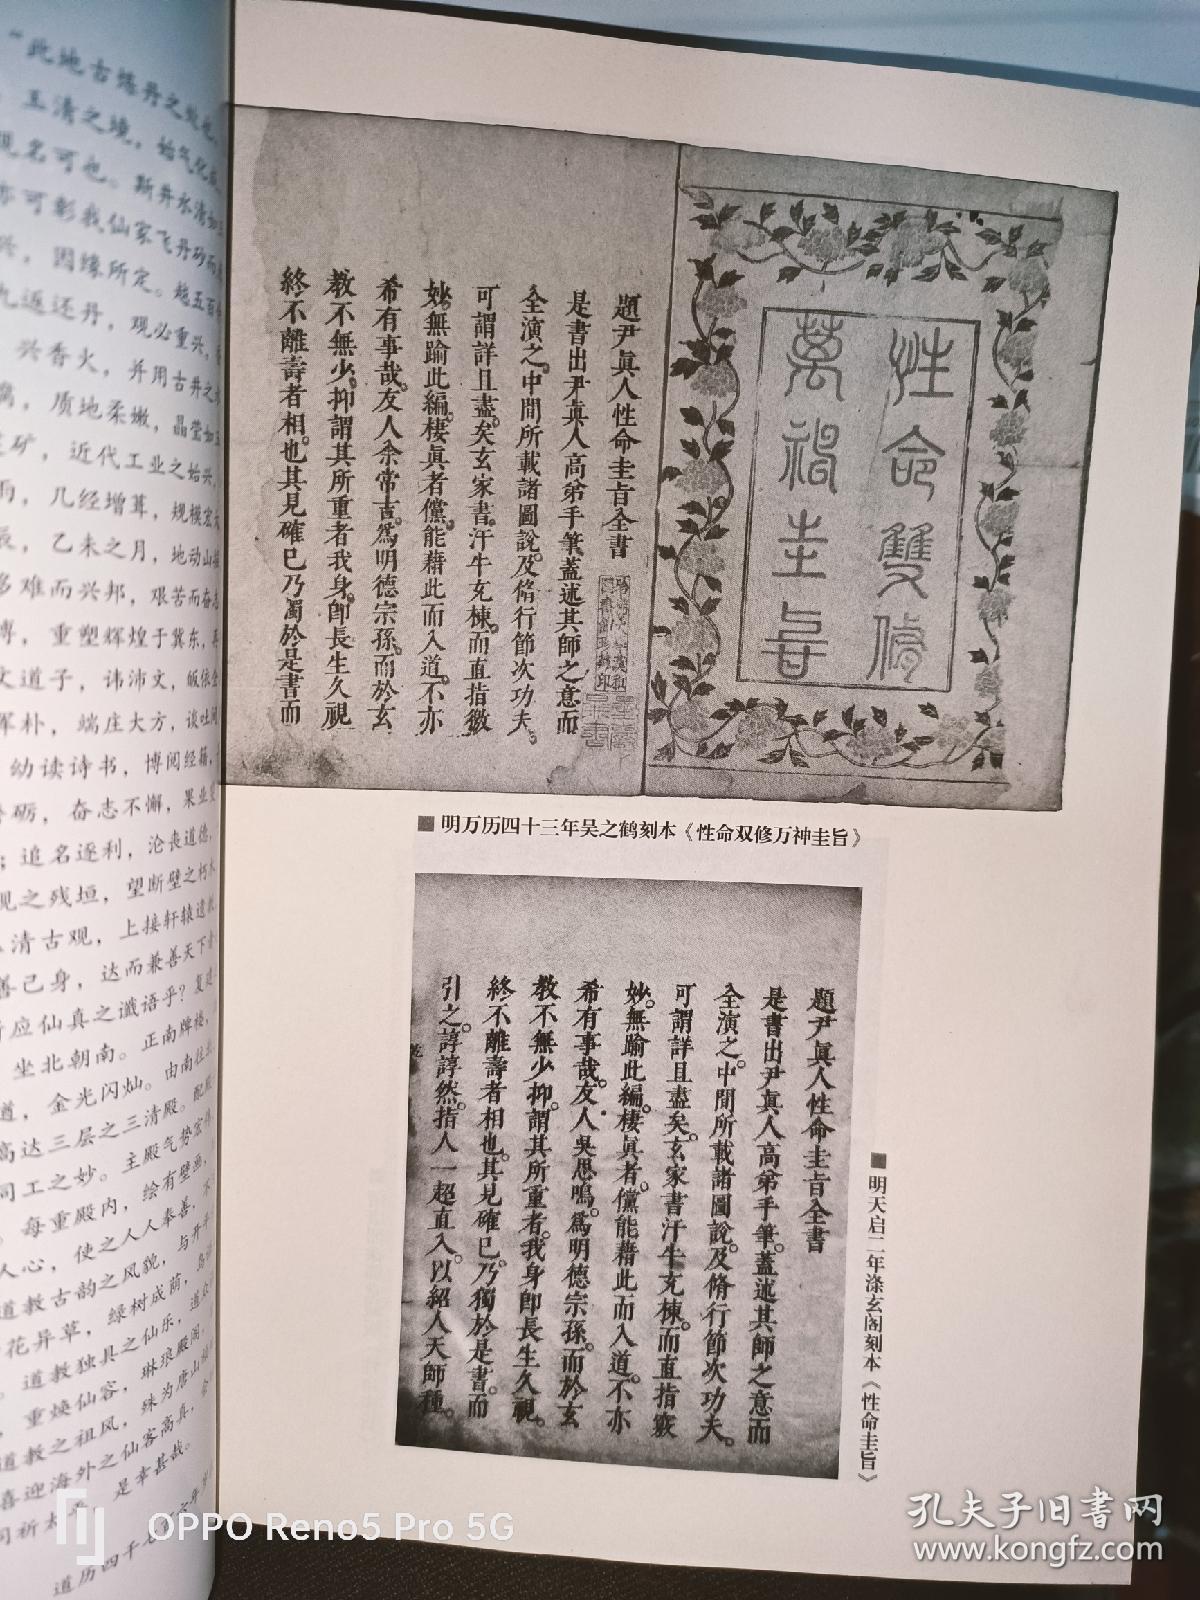 “此地古炼丹之处也，
玉清之境，始气化
观名可也。斯井水清如
亦可彰我仙家飞丹砂而
兴，因缘所定。越五百
九返还丹，观必重兴，
兴香火，并用古井之水
漓，质地柔嫩，晶莹如玉
矿，近代工业之始兴，
而，几经增葺，规模宏大
辰，乙未之月，地动山摇
多难而兴邦，艰苦而奋志
博，重塑辉煌于冀东，再
文道子，讳沛文，皈依全
浑朴，端庄大方，谈吐间
幼读诗书，博阅经籍，
砺，奋志不懈，果业
；追名逐利，沦丧道德，
观之残垣，望断壁之朽木
清古观，上接轩辕遗教，
善己身，达而兼善天下者
应仙真之谶语乎？复建
坐北朝南。正南牌楼，
道，金光闪灿。由南往北
高达三层之三清殿。配殿
同工之妙。主殿气势宏伟
每重殿内，绘有壁画，
人心，使之人人奉善，不
道教古韵之风貌，与开平
花异草，绿树成荫，鸟
道教独具之仙乐，道众
重焕仙容，琳琅殿阁，
道教之祖风，殊为唐山
喜迎海外之仙客高真，
同祈太平，是幸甚哉。
道历四千七百六年
性命雙修
萬神圭旨
題尹眞人性命圭旨全書
是書出尹眞人高弟手筆蓋述其師之意而
全演之中間所載諸圖說及脩行節次功夫
可謂詳且盡矣玄家書汗牛充棟而直指竅
妙無踰此編棲眞者儻能藉此而入道不亦
希有事哉友人余常吉爲明德宗孫而於玄
教不無少抑謂其所重者我身卽長生久視
終不離壽者相也其見確已乃獨於是書而
明万历四十三年吴之鹤刻本《性命双修万神圭旨》
題尹眞人性命圭旨全書
是書出尹眞人高弟手筆蓋述其師之意而
全演之中間所載諸圖說及脩行節次功夫
可謂詳且盡矣玄家書汗牛充棟而直指竅
妙無踰此編棲眞者儻能藉此而入道不亦
希有事哉友人吳思鳴爲明德宗孫而於玄
教不無少抑謂其所重者我身卽長生久視
終不離壽者相也其見確已乃獨於是書而
引之諄諄然指人一超直入以紹人天師種
明天启二年涤玄阁刻本《性命圭旨》
OPPO Reno5 Pro 5G
孔夫子旧书网
www.kongfz.com